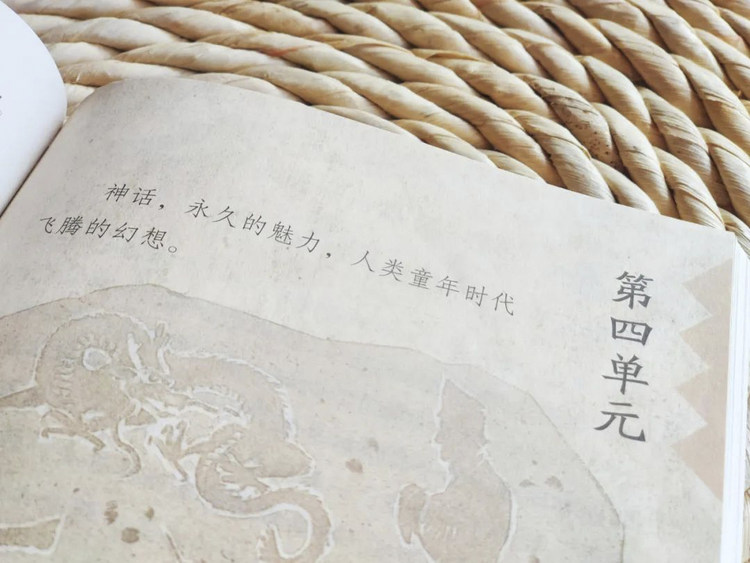 神话，永久的魅力，人类童年时代
飞腾的幻想。
第四单元